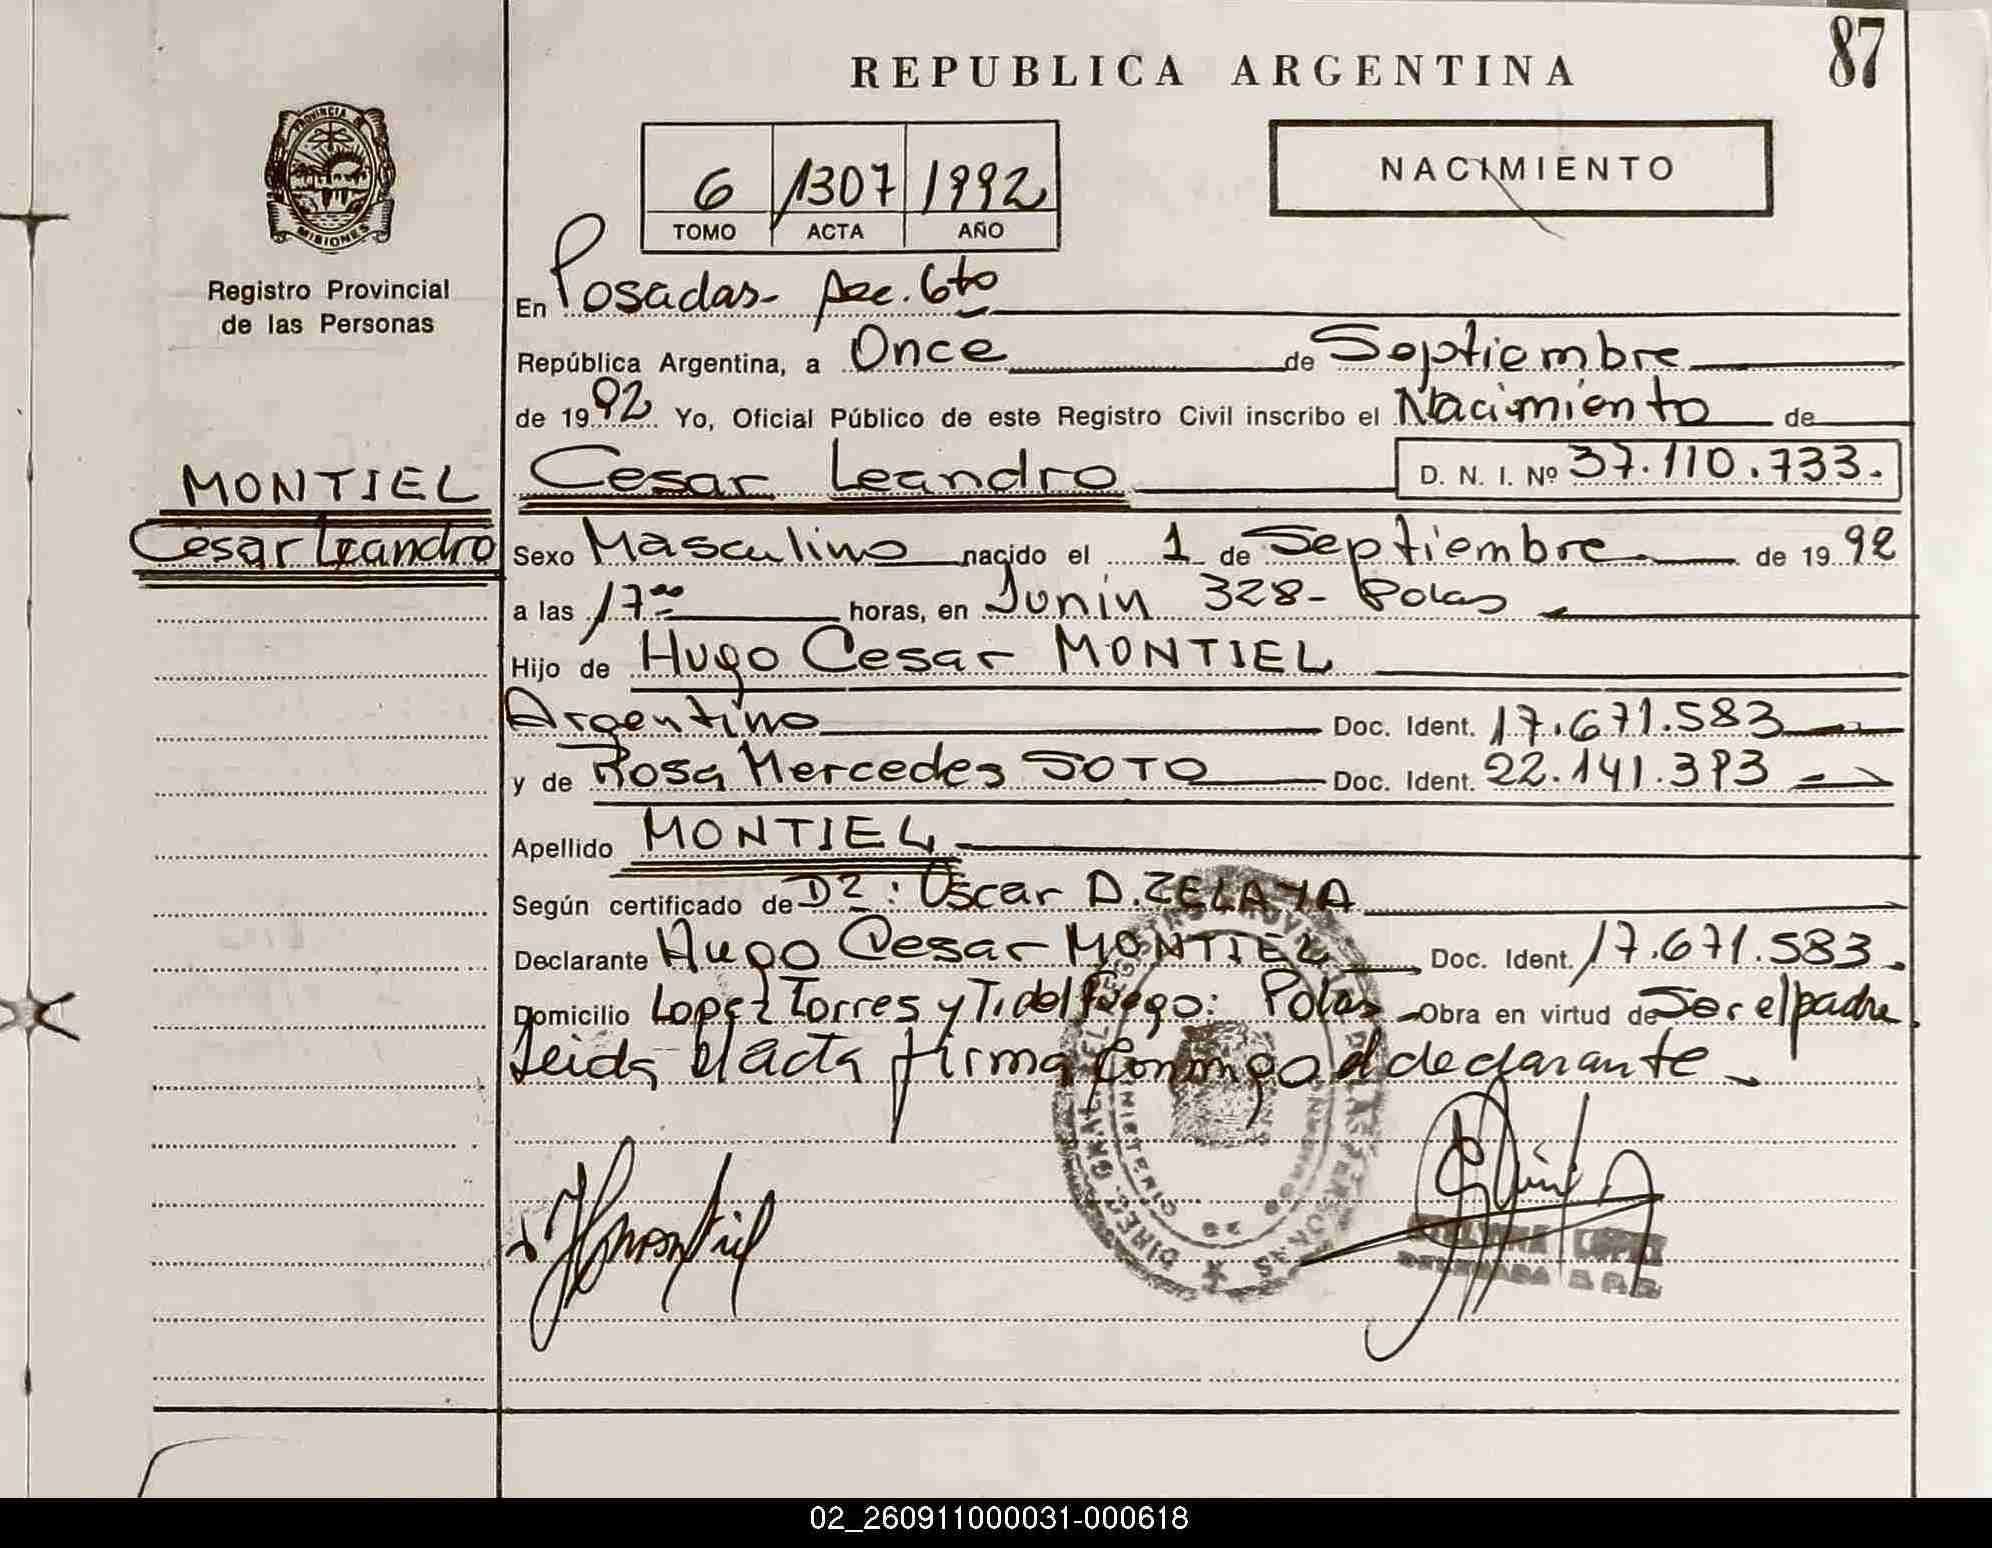 87
REPUBLICA ARGENTINA
NACIMIENTO
6 1307 1992
TOMO ACTA AÑO
PROVINCIA DE
MISIONES
Registro Provincial
de las Personas
MONTIEL
Cesar Leandro
En Posadas- Sec. 6to
República Argentina, a Once de Septiembre
de 1992 Yo, Oficial Público de este Registro Civil inscribo el Nacimiento de
Cesar Leandro D. N. I. Nº 37.110.733.
Sexo Masculino nacido el 1 de Septiembre de 1992
a las 17 horas, en Junín 328- Pdas
Hijo de Hugo Cesar MONTIEL
Argentino Doc. Ident. 17.671.583
y de Rosa Mercedes SOTO Doc. Ident. 22.141.393
Apellido MONTIEL
Según certificado de Dz: Oscar D. ZELAYA
Declarante Hugo Cesar MONTIEL Doc. Ident. 17.671.583.
Domicilio Lopez Torres y T. del fuego: Pdas Obra en virtud de Ser el padre
Leida el acta firma conmigo el declarante
02_260911000031-000618